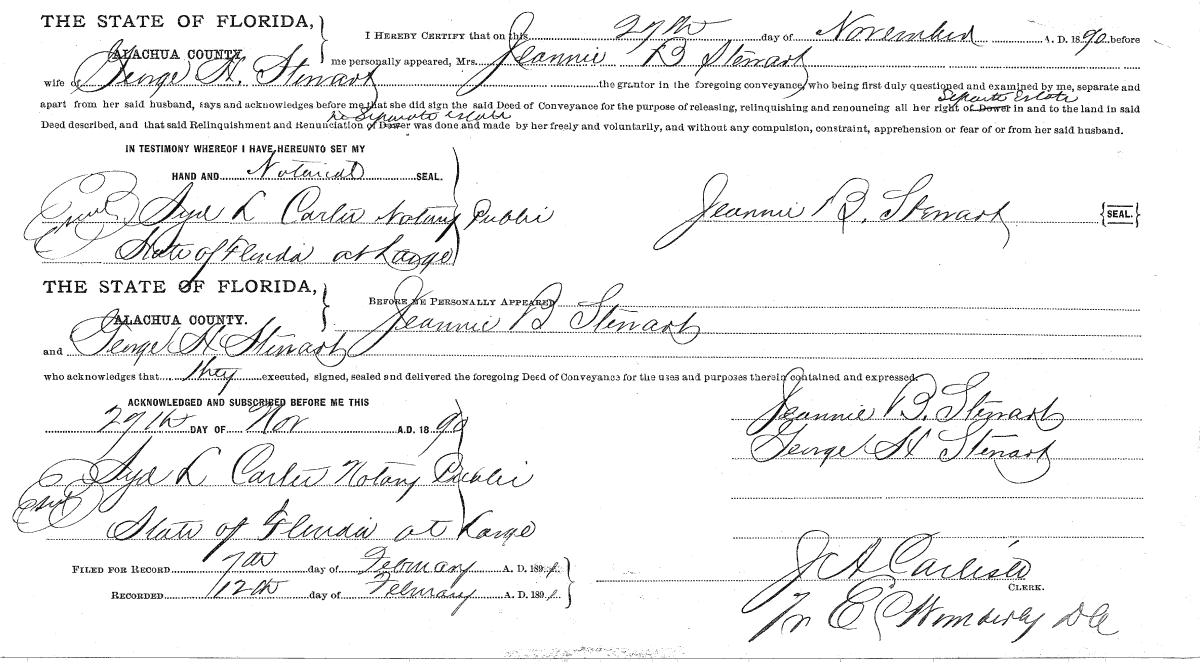 THE STATE OF FLORIDA,
ALACHUA COUNTY.
I HEREBY CERTIFY that on this 27th day of November A. D. 1890 before
me personally appeared, Mrs. Jeannie B Stewart
wife of George H. Stewart the grantor in the foregoing conveyance, who being first duly questioned and examined by me, separate and
Separate Estate
apart from her said husband, says and acknowledges before me that she did sign the said Deed of Conveyance for the purpose of releasing, relinquishing and renouncing all her right of Dower in and to the land in said
Separate estate
Deed described, and that said Relinquishment and Renunciation of Dower was done and made by her freely and voluntarily, and without any compulsion, constraint, apprehension or fear of or from her said husband.
IN TESTIMONY WHEREOF I HAVE HEREUNTO SET MY
HAND AND Notarial SEAL.
Syd L Carter Notary Public
Jeannie B. Stewart {SEAL.}
State of Florida at Large
THE STATE OF FLORIDA,
ALACHUA COUNTY.
BEFORE ME PERSONALLY APPEARED
Jeannie B Stewart
and George H Stewart
who acknowledges that they executed, signed, sealed and delivered the foregoing Deed of Conveyance for the uses and purposes therein contained and expressed.
ACKNOWLEDGED AND SUBSCRIBED BEFORE ME THIS
27th DAY OF Nov A.D. 1890
Jeannie B. Stewart
George H Stewart
Syd L Carter Notary Public
State of Florida at Large
FILED FOR RECORD 7th day of February A. D. 1891.
RECORDED 12th day of February A. D. 1891
J A Carlisle
CLERK.
E C Wimberly DC